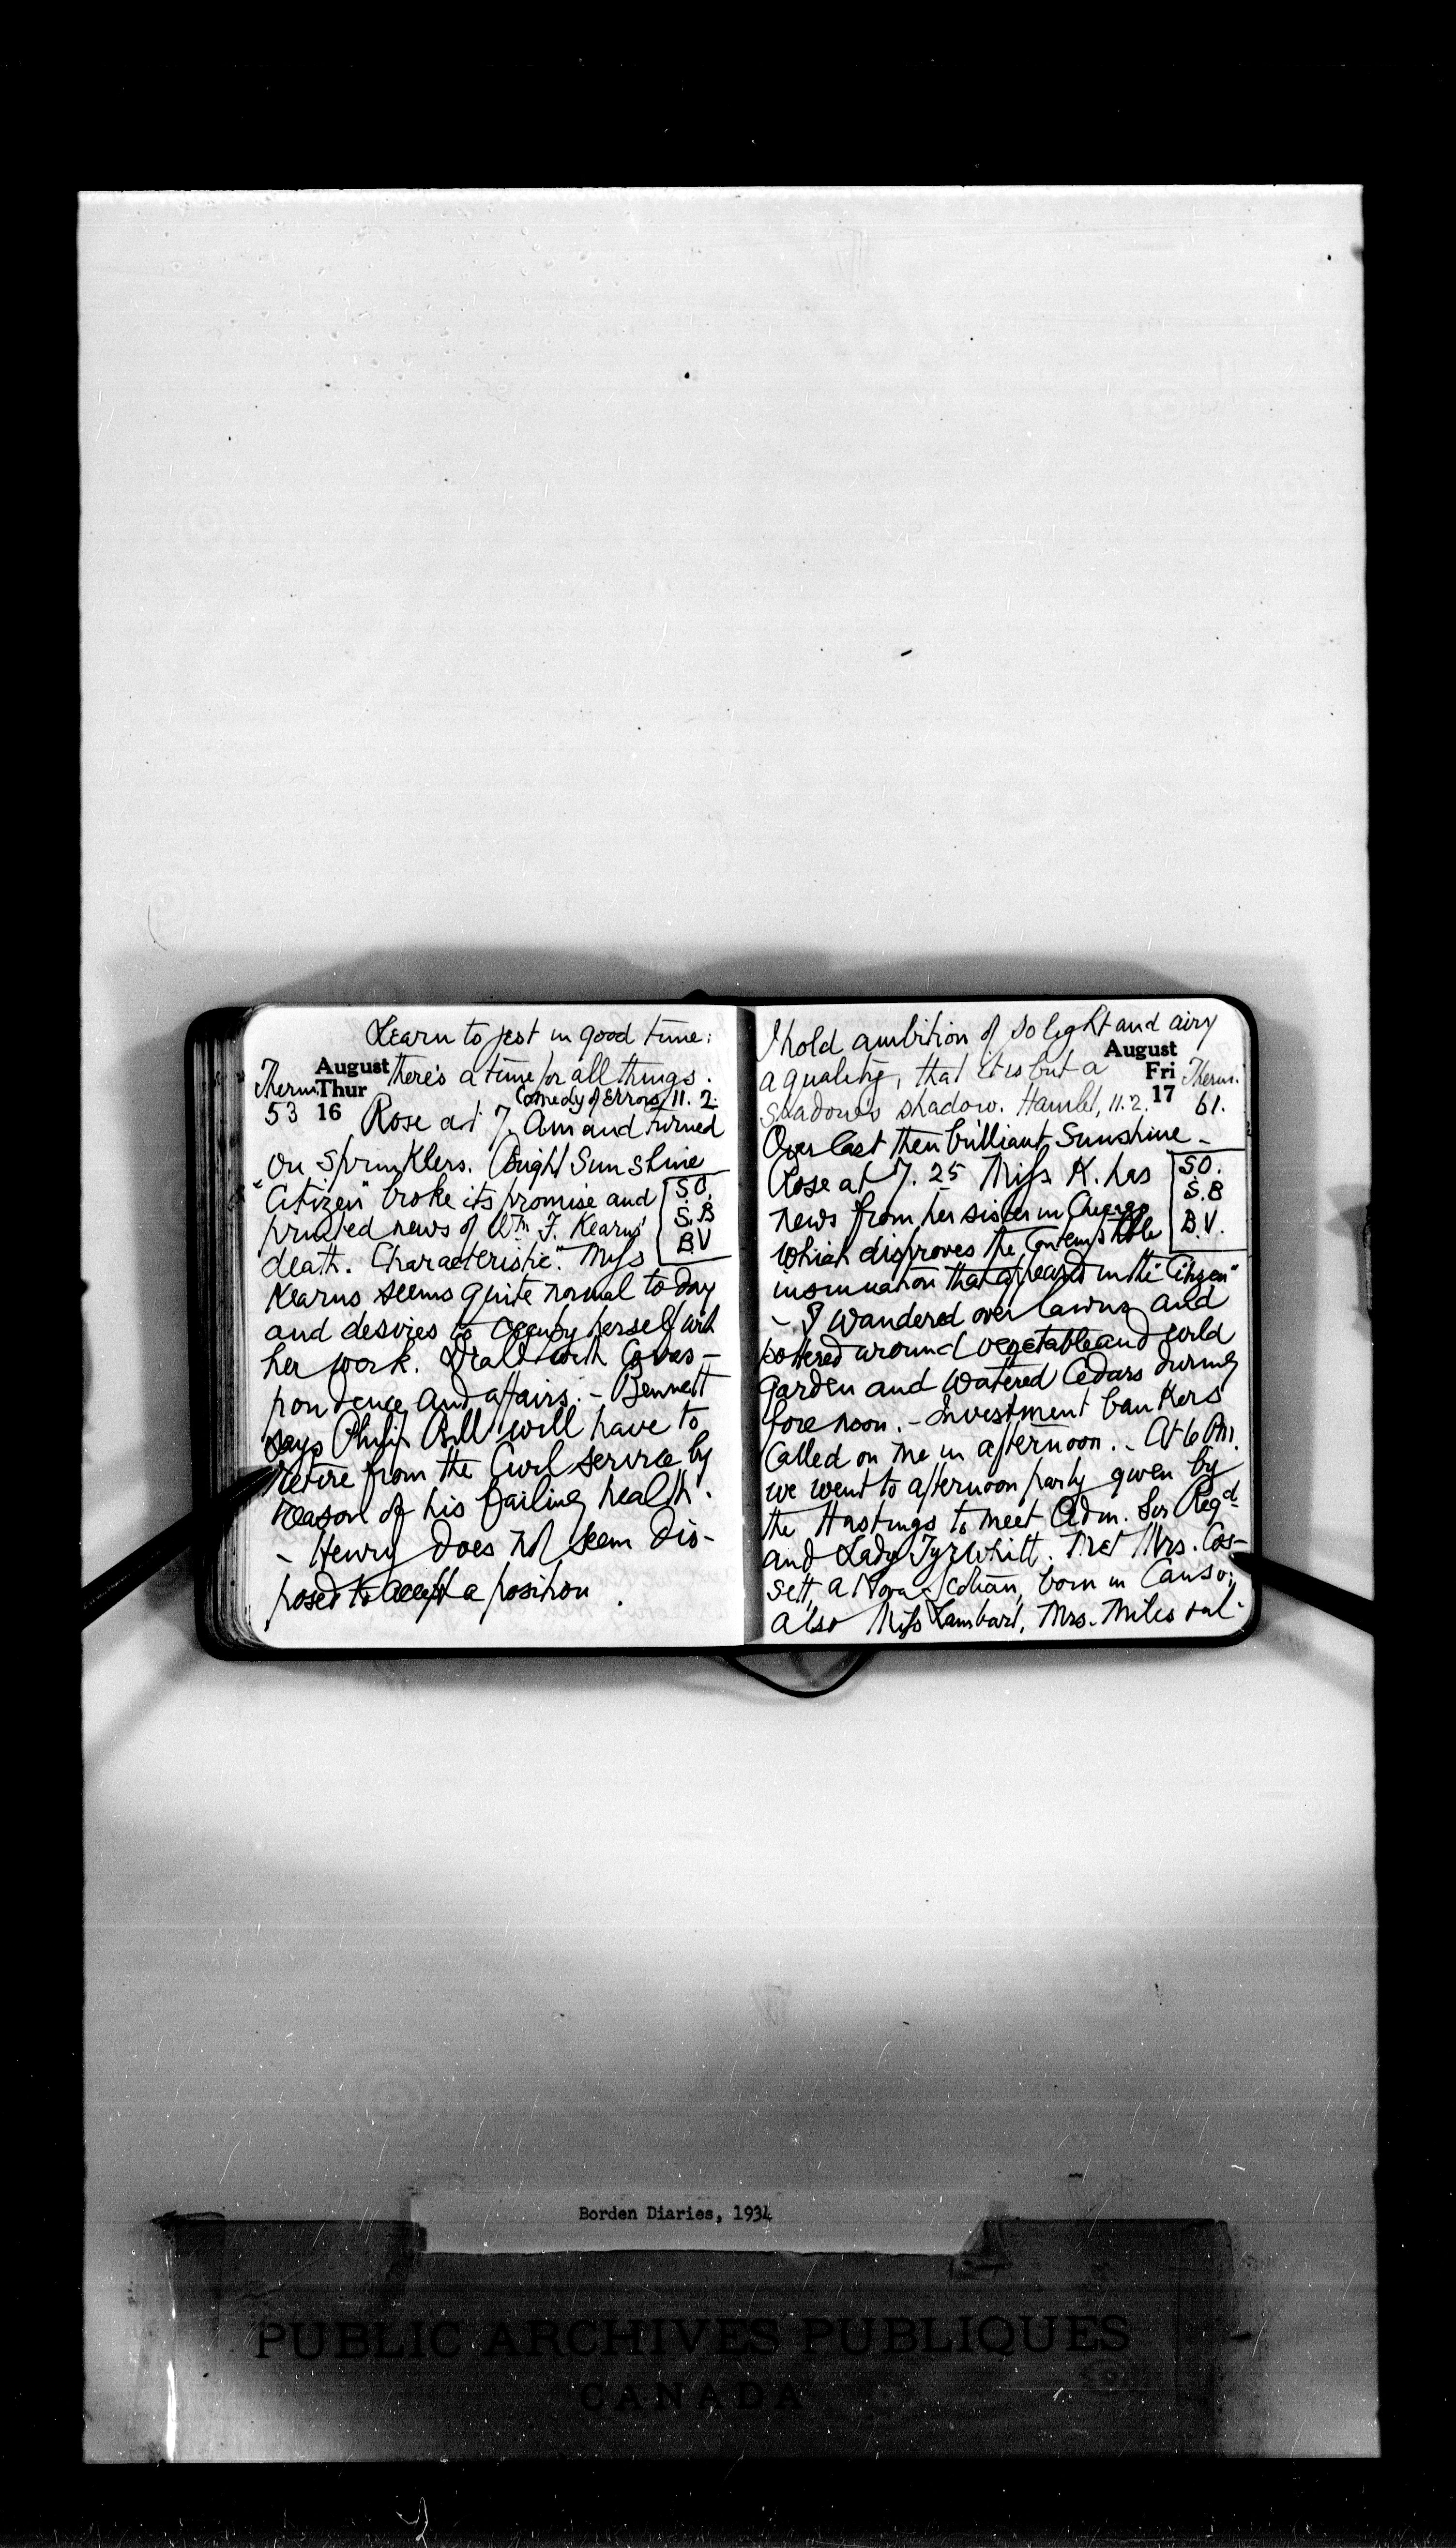 Learn to jest in good time:
August there's a time for all things.
Therm. Thur Comedy of Errors, 11. 2.
53 16 Rose at 7. Am and turned
on sprinklers. Bright Sunshine
"Citizen" broke its promise and
printed news of Wm. F. Kearns'
death. "Characteristic". Miss
S.O.
S.B
B.V
Kearns seems quite normal to day
and desires to occupy herself with
her work. Dealt with Corres-
pondence and affairs. - Bennett
says Philip will have to
retire from the Civil service by
reason of his failing health.
- Henry does not seem dis-
posed to accept a position.
I hold ambition of so light and airy
August
a quality, that it is but a Fri Therm.
shadow's shadow. Hamlet, 11.2. 17 61.
Over cast then brilliant Sunshine -
Rose at 7. 25 Miss K. has
news from her sister in Chicago
which disproves the contemptible
insinuation that appeared in the "Citizen"
S.O.
S.B
B.V.
- I wandered over lawns and
pottered around vegetable and wild
garden and watered Cedars during
fore noon. - Investment bankers
called on me in afternoon. - At 6 Pm.
we went to afternoon party given by
the Hastings to meet Adm. Sir Regd.
and Lady Tyrwhitt. Met Mrs. Cos-
sett, a Nova Scotian, born in Canso;
also Miss Lambart, Mrs. Miles
Borden Diaries, 1934
PUBLIC ARCHIVES PUBLIQUES
CANADA